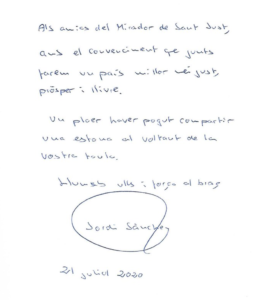 Als amics del Mirador de Sant Just,
amb el convenciment que junts
farem un país millor més just,
pròsper i lliure.
Un plaer haver pogut compartir
una estona al voltant de la
vostra taula.
Llunes ulls i força al braç
Jordi Sànchez
21 juliol 2020